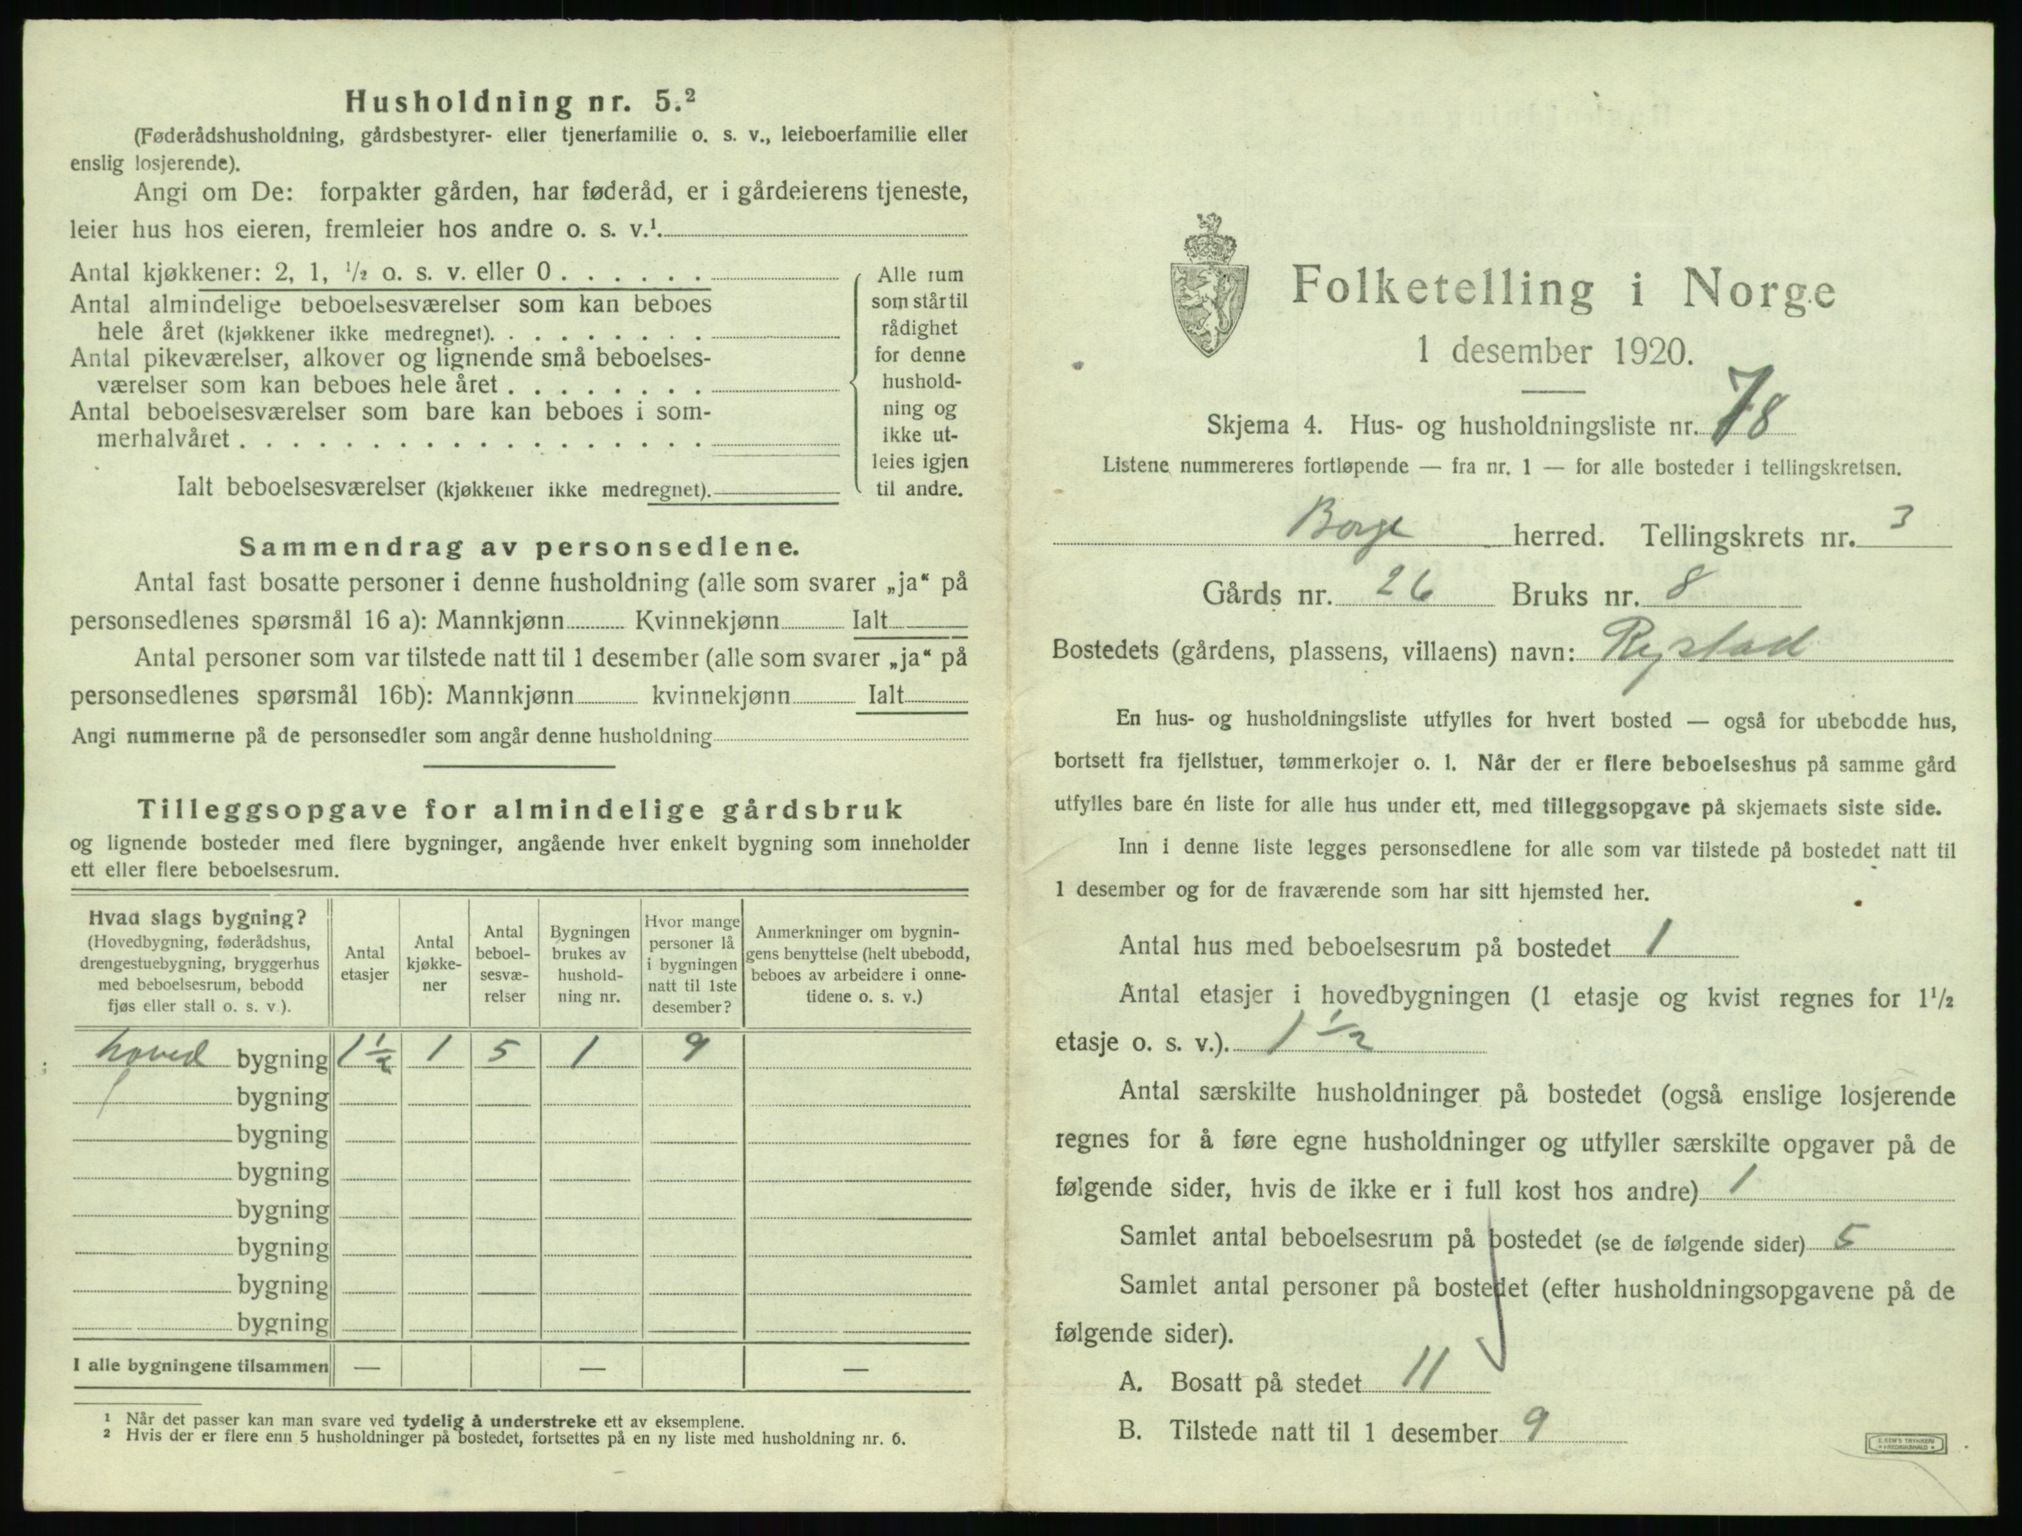 Husholdning nr. 5.²
(Føderådshusholdning, gårdsbestyrer- eller tjenerfamilie o. s. v., leieboerfamilie eller
enslig losjerende).
Angi om De: forpakter gården, har føderåd, er i gårdeierens tjeneste,
leier hus hos eieren, fremleier hos andre o. s. v.¹.
Antal kjøkkener: 2, 1, ½ o. s. v. eller 0 . . . . . .
Antal almindelige beboelsesværelser som kan beboes
hele året (kjøkkener ikke medregnet). . . . . . . . .
Antal pikeværelser, alkover og lignende små beboelses-
værelser som kan beboes hele året . . . . . . . .
Antal beboelsesværelser som bare kan beboes i som-
merhalvåret . . . . . . . . . . . . . . . . . .
Ialt beboelsesværelser (kjøkkener ikke medregnet).
Alle rum
som står til
rådighet
for denne
hushold-
ning og
ikke ut-
leies igjen
til andre.
Sammendrag av personsedlene.
Antal fast bosatte personer i denne husholdning (alle som svarer „ja“ på
personsedlenes spørsmål 16 a): Mannkjønn Kvinnekjønn Ialt
Antal personer som var tilstede natt til 1 desember (alle som svarer „ja“ på
personsedlenes spørsmål 16b): Mannkjønn kvinnekjønn Ialt
Angi nummerne på de personsedler som angår denne husholdning
Tilleggsopgave for almindelige gårdsbruk
og lignende bosteder med flere bygninger, angående hver enkelt bygning som inneholder
ett eller flere beboelsesrum.
Hvad slags bygning?
(Hovedbygning, føderådshus,
drengestuebygning, bryggerhus
med beboelsesrum, bebodd
fjøs eller stall o. s. v.).
Antal
etasjer
Antal
kjøkke-
ner
Antal
beboel-
sesvæ-
relser
Bygningen
brukes av
hushold-
ning nr.
Hvor mange
personer lå
i bygningen
natt til 1ste
desember?
Anmerkninger om bygnin-
gens benyttelse (helt ubebodd,
beboes av arbeidere i onne-
tidene o. s. v.)
hoved bygning 1½ 1 5 1 9
bygning
bygning
bygning
bygning
bygning
bygning
bygning
I alle bygningene tilsammen — — —
¹ Når det passer kan man svare ved tydelig å understreke ett av eksemplene.
² Hvis der er flere enn 5 husholdninger på bostedet, fortsettes på en ny liste med husholdning nr. 6.
Folketelling i Norge
1 desember 1920.
Skjema 4. Hus- og husholdningsliste nr. 78
Listene nummereres fortløpende — fra nr. 1 — for alle bosteder i tellingskretsen.
Borge herred. Tellingskrets nr. 3
Gårds nr. 26 Bruks nr. 8
Bostedets (gårdens, plassens, villaens) navn: Rystad
En hus- og husholdningsliste utfylles for hvert bosted — også for ubebodde hus,
bortsett fra fjellstuer, tømmerkojer o. l. Når der er flere beboelseshus på samme gård
utfylles bare én liste for alle hus under ett, med tilleggsopgave på skjemaets siste side.
Inn i denne liste legges personsedlene for alle som var tilstede på bostedet natt til
1 desember og for de fraværende som har sitt hjemsted her.
Antal hus med beboelsesrum på bostedet 1
Antal etasjer i hovedbygningen (1 etasje og kvist regnes for 1½
etasje o. s. v.). 1½
Antal særskilte husholdninger på bostedet (også enslige losjerende
regnes for å føre egne husholdninger og utfyller særskilte opgaver på de
følgende sider, hvis de ikke er i full kost hos andre) 1
Samlet antal beboelsesrum på bostedet (se de følgende sider) 5
Samlet antal personer på bostedet (efter husholdningsopgavene på de
følgende sider).
A. Bosatt på stedet 11
B. Tilstede natt til 1 desember 9